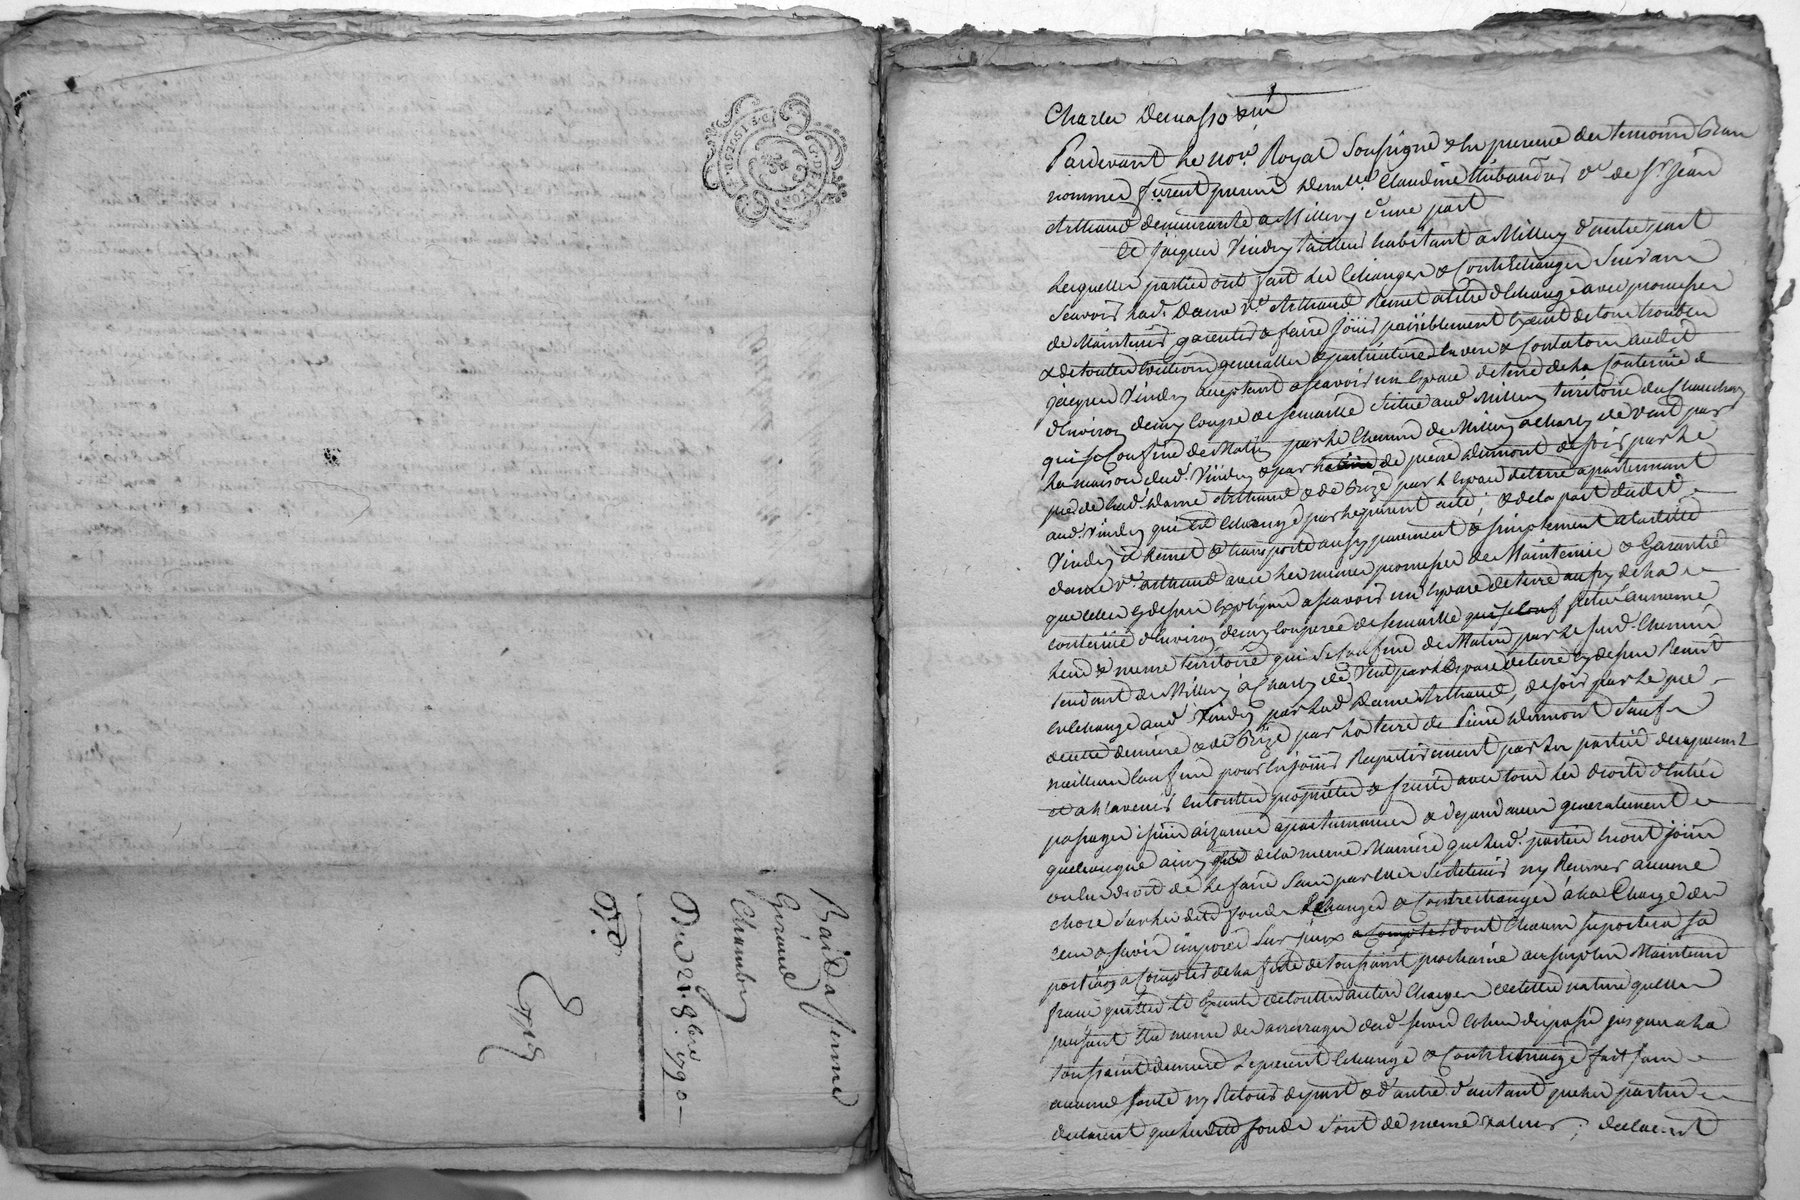 G. DE LYON
Bail à ferme
Giraud
Chambry
Du 21 8bre 1790
Expié
Pardevant le nore Royal soussigné & en presence des temoins bas
nommes furent presents demlle Claudine Thibaudier ve de Sr Jean
Arthaud demeurante a Millery d'une part
Et Jacques Vindry tailleur habitant a Millery d'autre part
Lesquelles parties ont fait les Echanges & Contrechanges suivans
Scavoir lad. Dame ve Arthaud Remet a titre d'Echange avec promesse
de Maintenir garentir & faire jouir paisiblement Exempt de tous troubles
& de toutes Evictions generalles & particulieres envers & Contre tous audit
jacques Vindry acceptant ascavoir un Espace de terre de la Contenue
d'Environ demy Coupée de semaille Située aud. Millery territoire du
qui se Confine de Matin par le Chemin de Millery a Charly de vent par
la maison dud. Vindry & par de pierre Dumont de soir par le
pré de lad. Dame Arthaud & de bize par l'Espace de terre apartenant
aud. Vindry qui est Echangé par le present acte; & de la part dudit
Vindry il Remet & transporte aussy purement & simplement a laditte
dame ve arthaud avec les memes promesses de Maintenir & Garantir
que celles cydessus Expliquées ascavoir un Espace de terre aussy de la
contenue d'Environ demy Couperée de semaille situé au meme
lieu & meme territoire qui se Confine de Matin par le susd. Chemin
tendant de Millery a Charly de Vent par l'Espace de terre cy dessus Remis
en Echange aud. Vindry par lad. Dame Arthaud, de soir par le pré
de cette derniere & de Bize par la terre de Pierre Dumont sauf
meilleurs Confins pour en jouir Respectivement par les parties des apresent
et a l'avenir en toutte propriété & fruits avec tous les droits d'Entrées
passages issues aizances apartenances & dependances generalement
quelconques ainsy & de la meme Maniere que lesd. parties en ont joui
ou eu droit de le faire sans par elles se Retenir ny Reserver aucune
chose sur les dits fonds Echangés & Contrechangés à la Charge des
cens & servis imposés sur iceux dont Chacun suportera sa
portion a Compter de la fete de toussaint prochaine au surplus Maintenus
francs quittes Et Exempts de touttes autres Charges de telle nature qu'elles
puissent Etre meme des arrerages dud. servis Echus du passé jusques a la
toussaint derniere Le present Echange & Contrechange fait sans
aucune soute ny Retour de part & d'autre d'autant que les parties
declarent que lesdits fonds sont de meme valeur; declarent